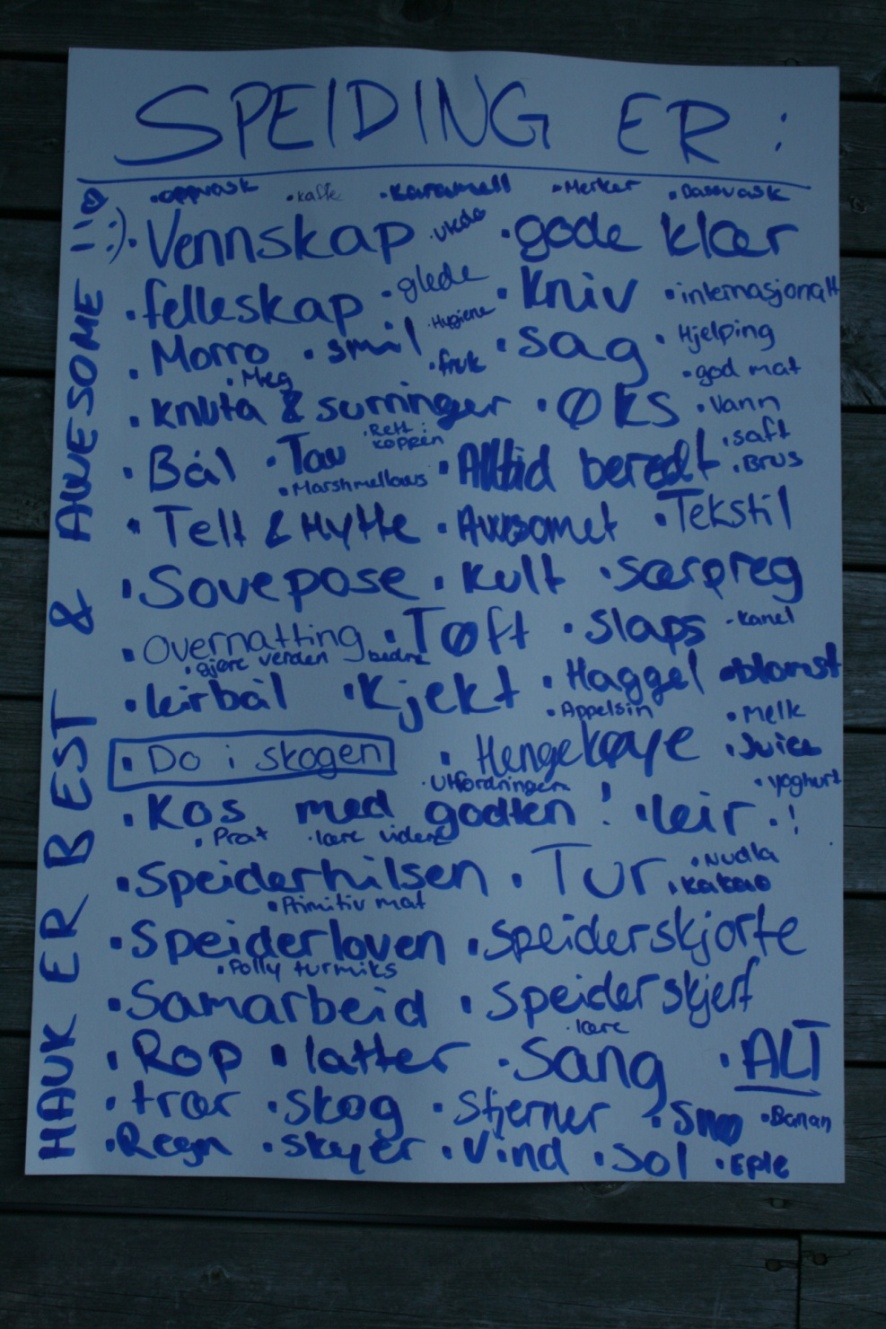 SPEIDING ER :
• oppvask • kaffe • karamell • Merker • Dassvask
• Vennskap • gode klær
• felleskap • glede • Kniv • internasjonalt
• Hygiene
• Morro • smil • sag • Hjelping
• Meg • fruk • god mat
• knuta & surringer • ØKS • Vann
• Rett i koppen • saft
• Bål • Tau • Alltid beredt • BRUS
• Marshmellows
• Telt & Hytte • Awsomet • Tekstil
• Sovepose • Kult • særpreg
• Overnatting • Tøft • slaps - kanel
• gjøre verden bedre
• leirbål • Kjekt • Haggel • blomst
• Appelsin • Melk
• Do i skogen • Hengekøye • Juice
• Utfordringer • yoghurt
• Kos med godten ! • leir • !
• Prat • lære videre
• Speiderhilsen • Tur • Nudla
• kakao
• Primitiv mat
• Speiderloven • Speiderskjorte
• Polly turmiks
• Samarbeid • Speiderskjerf
• lære
• Rop • latter • Sang • ALT
• trær • Skog • Stjerner • Snø • Banan
• Regn • skyer • Vind • sol • Eple
HAUK ER BEST & AWESOME !! ♡
:)